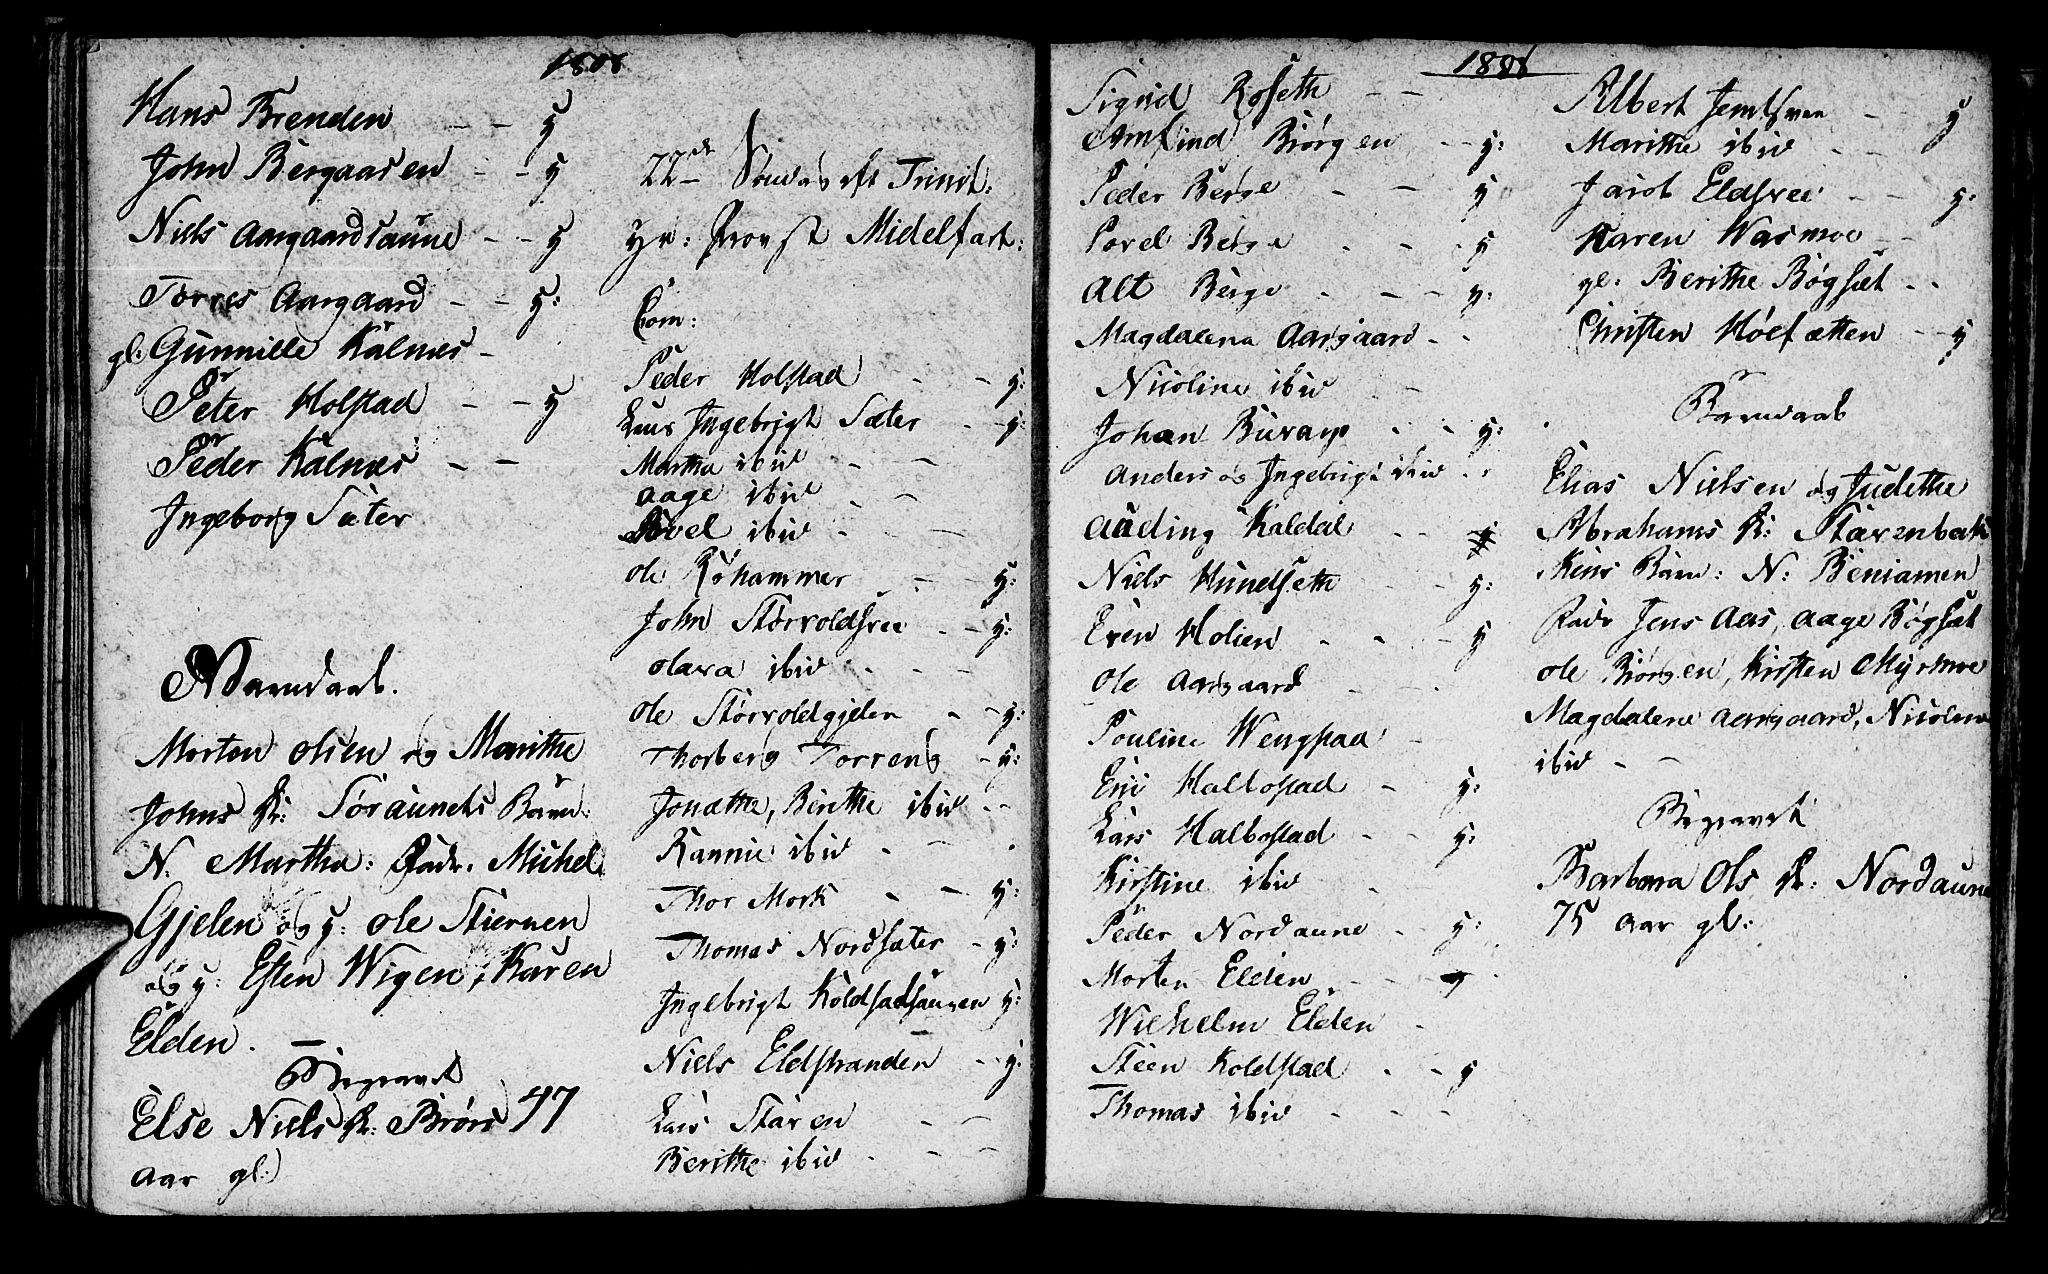 1808
Hans Brenden - - y
John Bergaasen - - y
Niels Aargaardsaune - - y
Torres Aargaard - - y:
gl: Gunnille Kalnes -
Peter Holstad - - y
Peder Kalnes - -
Ingeborg Sæter
Barndaab.
Morten Olsen og Marithe
Johns K: Søraunets Barn:
N. Martha: Fadr. Michel
Gjelen og y: Ole Stiernen
og y: Esten Wigen, Karen
Elden. -
Begravet
Else Niels K: Brørs 47
aar gl:
22de Søndag eft Trinit:
Hr: Provst Midelfart:
Com:
Peder Holstad - - y:
Lars Ingebrigt Sæter - - y:
Martha ibid - -
Aage ibid - -
Povel ibid - -
Ole Røhammer - y:
John Størvoldsvee - - y:
Olava ibid - - -
Ole Størvoldgjelen - - y:
Thorberg Torreng - y:
Jonætha, Birithe ibid - -
Rannie ibid - - -
Thor Mork - - y:
Thomas Nordsæter - y:
Ingebrigt Koldsadsaunen y:
Niels Eldstranden - - y:
Lars Staren - -
Berithe ibid - - -
1808
Sigrid Roseth - -
Arnfind Biørgen - - y:
Peder Berge - - y
Povel Berge - - y
Alt Berge - - - y:
Magdalena Aargaard - -
Nicoline ibid -
Johan Buran - - y:
Anders og Ingebrigt ibid - -
Auding Kaldal - - y
Niels Hundseth - y:
Even Holien - - - y
Ole Aargaard - -
Pouline Wengstad -
Eric Halbostad - y:
Lars Halbostad - - y:
Kirstine ibid -
Peder Nordaune - y:
Morten Elden - - y
Wilhelm Elden -
Steen Koldstad - - y
Thomas ibid - - -
Albert Jemtsvee - y
Marithe ibid - -
Jacob Eldsvee - - y:
Karen Wasmoe - -
gl: Berithe Bøgset - -
Christen Høesætten - - y
Barndaab
Elias Nielsen og Judethe
Abrahams K: Starenbak-
kens Barn: N: Beniamen
Fadr Jens Aas, Aage Bøgset
Ole Biørgen, Kirsten Myrmoe
Magdalene Aargaard, Nicoline
ibid - -
Begravet
Barbara Ols K: Nordaune
75 aar gl: